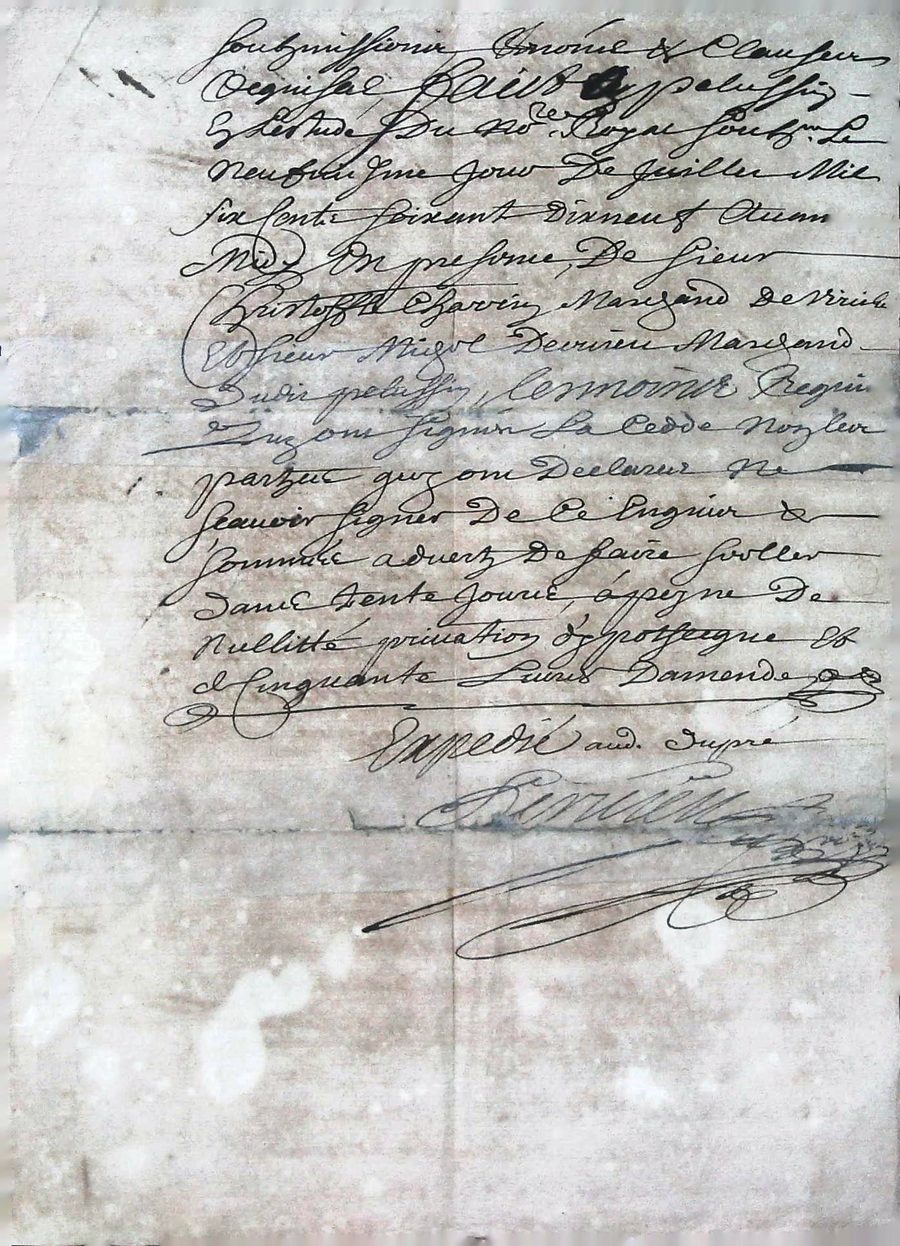 soubzmissions & Clauses
Requises faict a pelussin
En Lestude Du Not.re Royal soubz.ne Le
Neufviesme Jour De Juillet Mil
six Cents soixant Dixneuf Avan
Midy En presence De sieur
Christofle Chavin Marchand De Virieu
Et sieur Marchand
Dudit pelussin, tesmoins Requis
ont signés La Cedde Non les
parties qui ont Declarés Ne
scavoir signer De Ce Enquis &
sommés advertz De faire sceller
Dans trente Jours, a peyne De
Nullitté privation d'hypotheque Et
de Cinquante Livres Damende
Expedié aud. Dupré